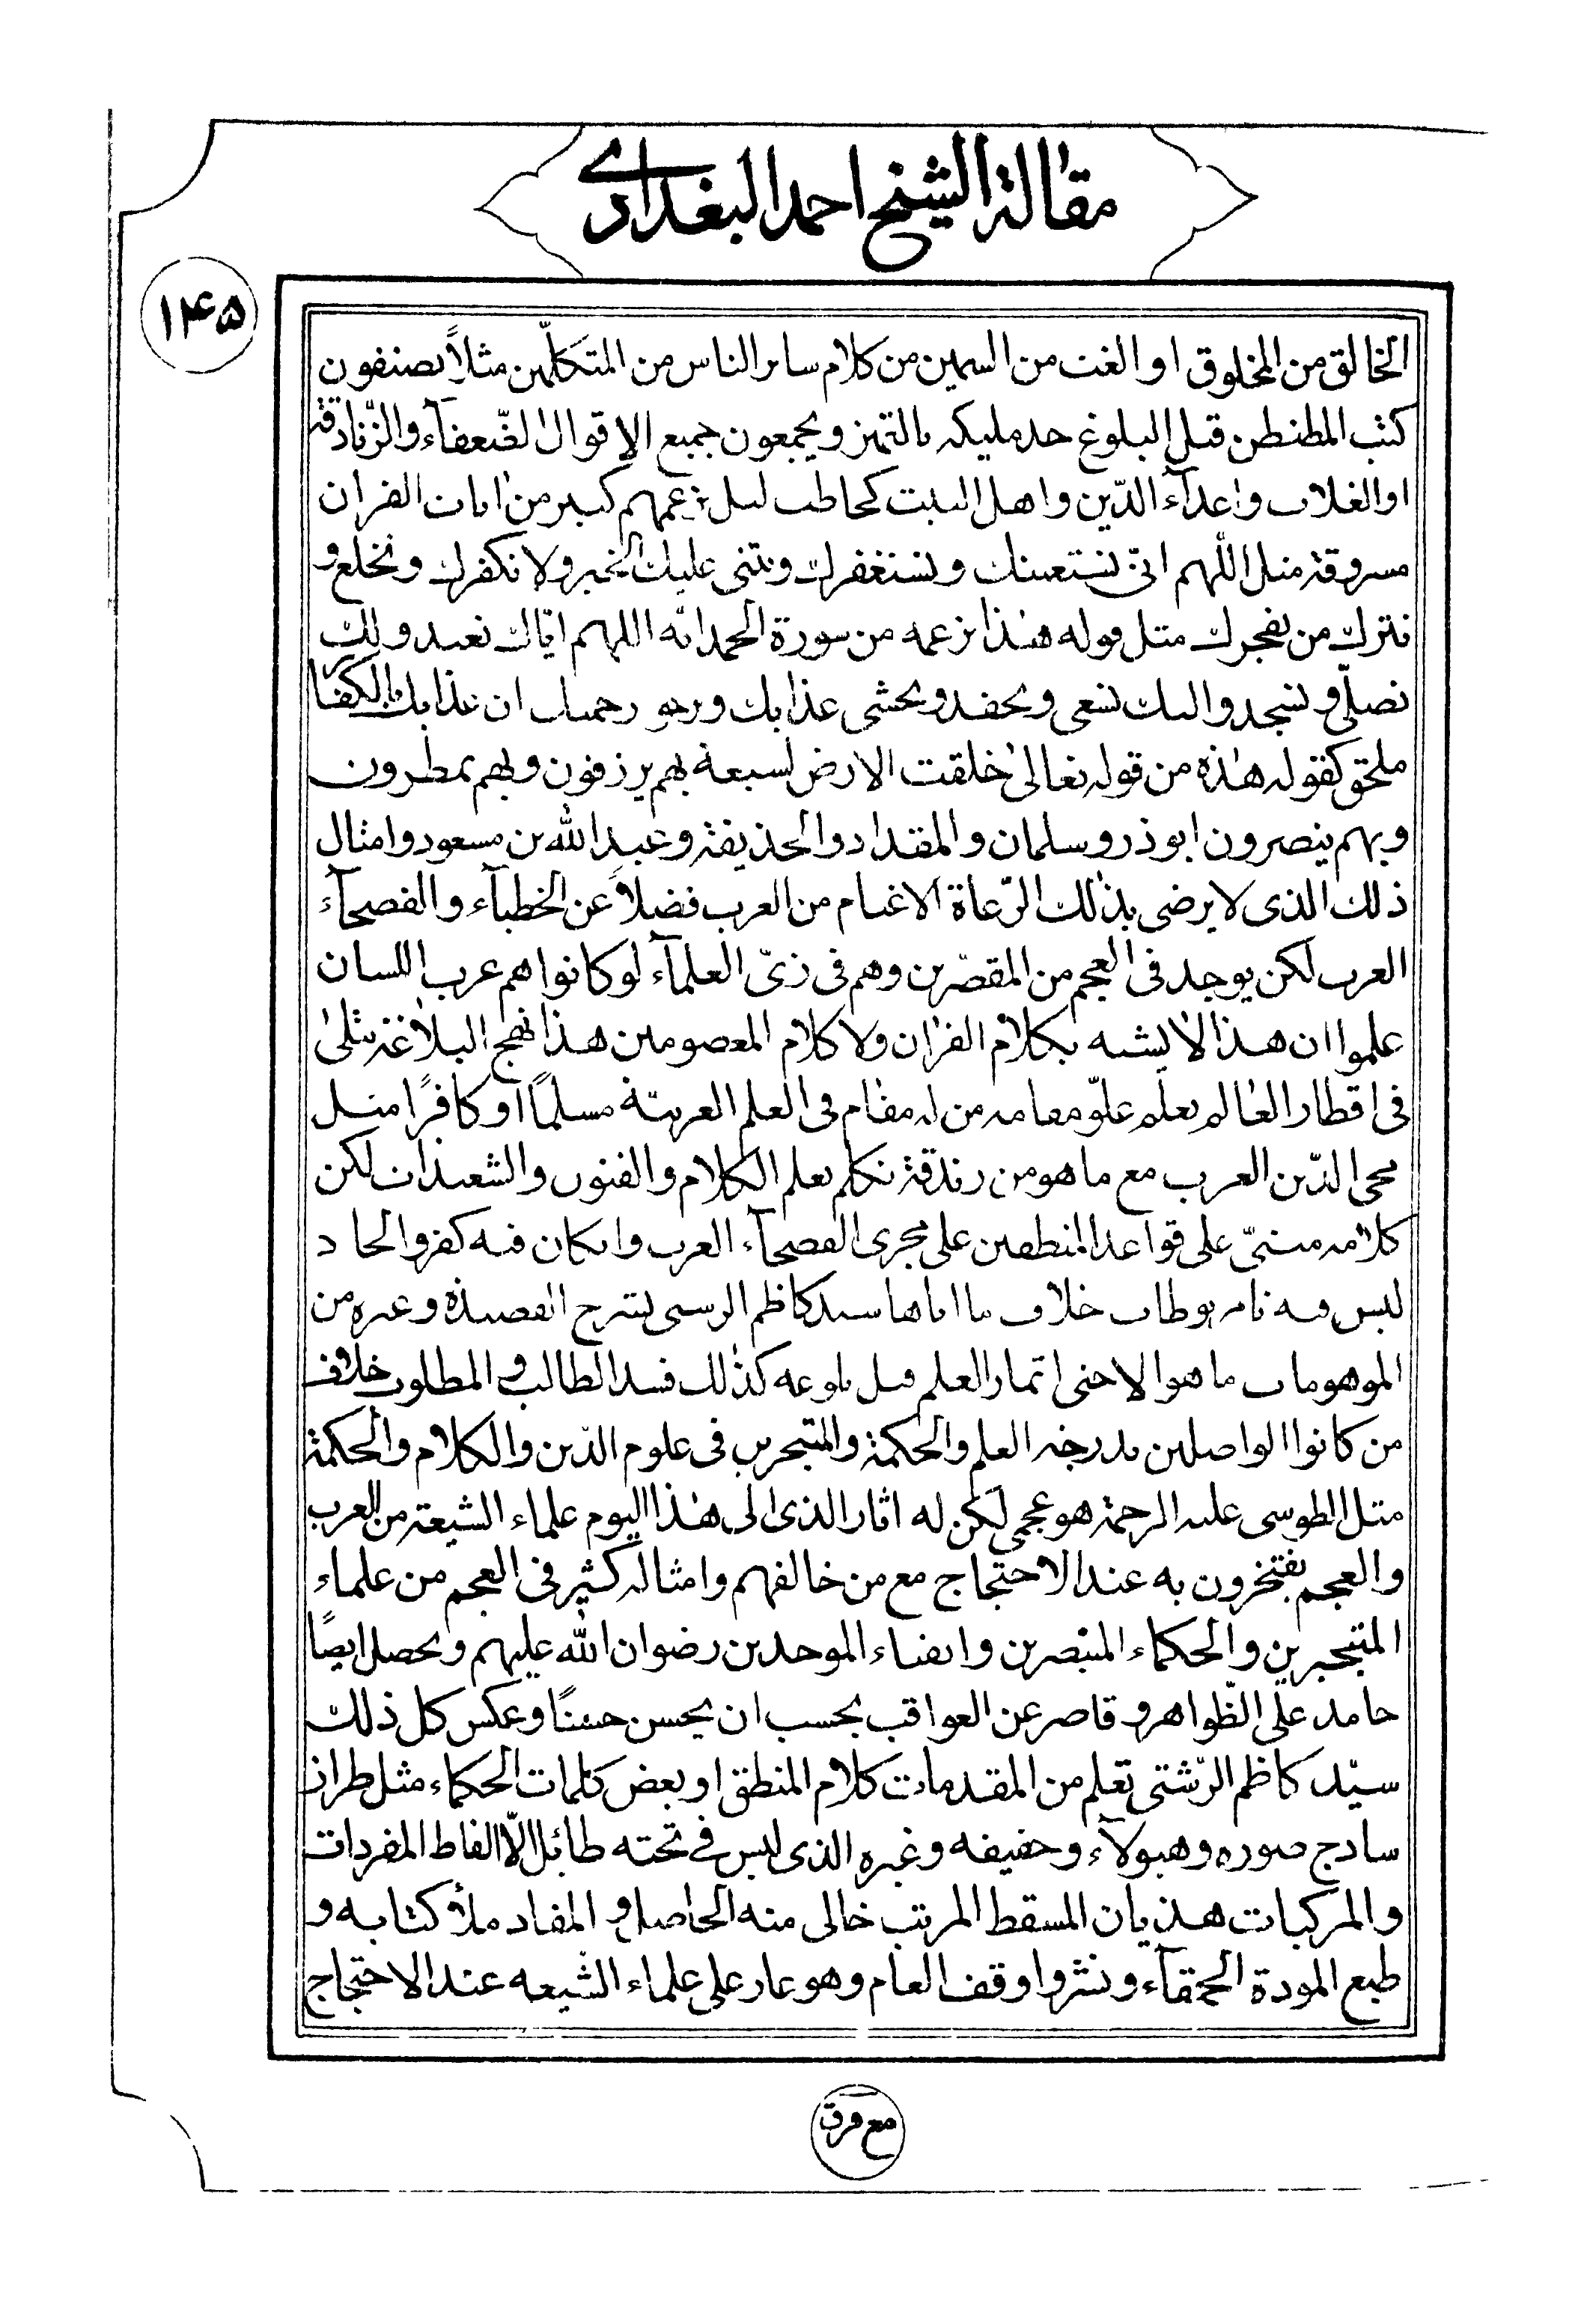 مقالة الشيخ احمد البغدادي
۱۴۵
الخالق من المخلوق او الغث من السمين من كلام ساير الناس من المتكلّمين مثلاً يصنفون
كتب المطنطن قبل البلوغ حد مليكه بالتميز ويجمعون جميع الاقوال الضّعفآء والزّنادقة
او الغلات واعدآء الدّين واهل البيت كحاطب ليل بزعمهم كبير من ايات القران
مسروقة مثل اللّهم انّي نستعينك ونستغفرك ونثنى عليك الخير ولا نكفرك ونخلع و
نترك من يفجرك مثل قوله هذا بزعمه من سورة الحمد انه اللهم ايّاك نعبد ولك
نصلّي ونسجد واليك نسعى ونحفد ونخشى عذابك ونرجو رحمتك ان عذابك بالكفار
ملحق كقوله هذه من قوله تعالى خلقت الارض لسبعة بهم يرزقون وبهم يمطرون
وبهم ينصرون ابوذر وسلمان والمقداد والحذيفة وعبد الله بن مسعود وامثال
ذلك الذى لا يرضى بذلك الرّعاة الاغنام من العرب فضلاً عن الخطبآء والفصحآء
العرب لكن يوجد فى العجم من المقصّرين وهم فى زىّ العلمآء لو كانوا هم عرب اللسان
علموا ان هذا لا يشبه بكلام القران ولا كلام المعصومين هذا نهج البلاغة يتلى
فى اقطار العالم يعلم علوّ مقامه من له مقام فى العلم العربيّة مسلمًا او كافرًا مثل
محى الدّين العرب مع ما هو من زندقة تكلم بعلم الكلام والفنون والشعبذات لكن
كلامه مبنىّ على قواعد المنطقين على مجرى الفصحآء العرب وان كان فيه كفر والحاد
ليس فيه خلاف ما اتاها سيد كاظم الرشتى بشرح القصيدة وغيره من
الموهومات ما هو الا جنى اثمار العلم قبل بلوغه كذلك فسد الطالب و المطلوب خلاف
من كانوا الواصلين بدرجة العلم والحكمة والمتبحرين فى علوم الدّين والكلام والحكمة
مثل الطوسى عليه الرحمة هو عجمى لكن له اثار الذى الى هذا اليوم علماء الشيعة من العرب
والعجم يفتخرون به عند الاحتجاج مع من خالفهم وامثاله كثير فى العجم من علماء
المتبحرين والحكماء المتبصرين واتقياء الموحدين رضوان الله عليهم ويحصل ايضًا
جامد على الظّواهر وقاصر عن العواقب يحسب ان يحسن حسنًا وعكس كل ذلك
سيّد كاظم الرّشتى تعلم من المقدمات كلام المنطق او بعض كلمات الحكماء مثل طراز
ساذج صوره وهيولاء وحقيقه وغيره الذى ليس فى تحته طائل الّا الفاظ المفردات
والمركبات هذيان المسقط المرتب خالى منه الحاصل و المفاد ملأ كتابه و
طبع المودة الحمقآء ونشر واوقف العام وهو عار على علماء الشيعه عند الاحتجاج
مع فرق